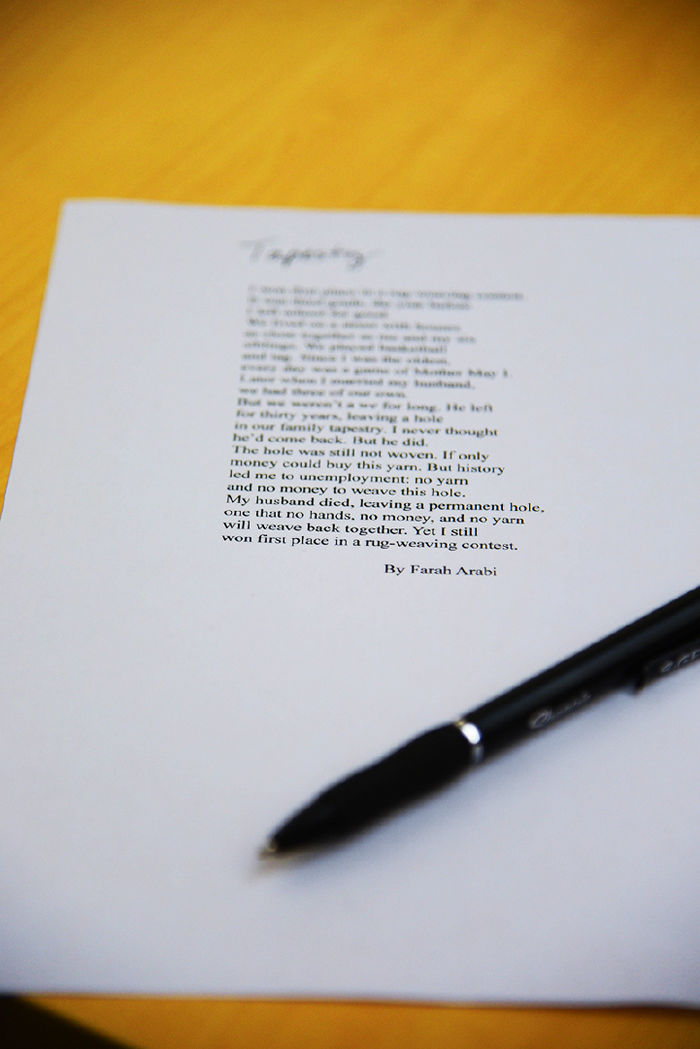 Tapestry
I won first place in a rug-weaving contest.
It was third grade, the year before
I left school for good.
We lived on a street with houses
as close together as me and my six
siblings. We played basketball
and tag. Since I was the oldest,
every day was a game of Mother May I.
Later when I married my husband,
we had three of our own.
But we weren't a we for long. He left
for thirty years, leaving a hole
in our family tapestry. I never thought
he'd come back. But he did.
The hole was still not woven. If only
money could buy this yarn. But history
led me to unemployment: no yarn
and no money to weave this hole.
My husband died, leaving a permanent hole,
one that no hands, no money, and no yarn
will weave back together. Yet I still
won first place in a rug-weaving contest.
By Farah Arabi